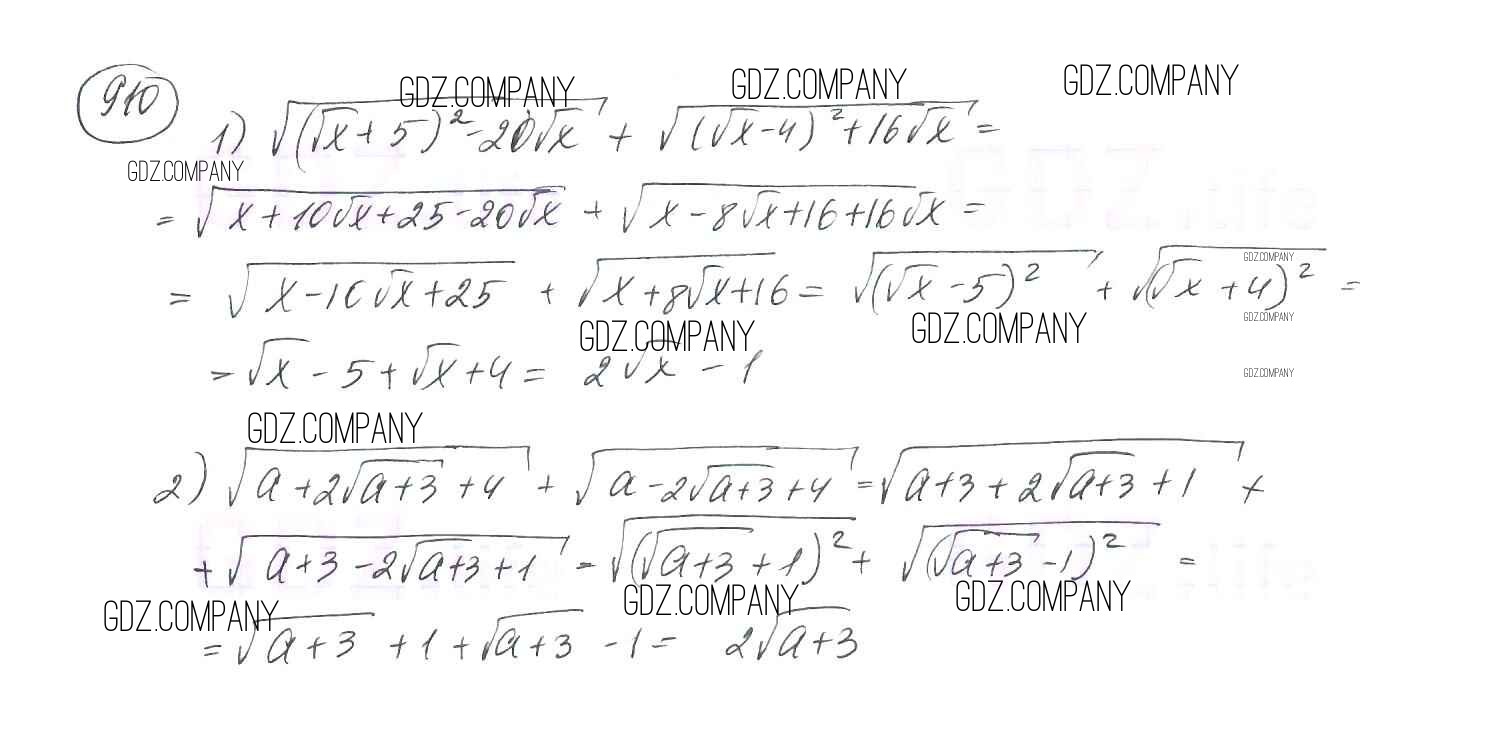 910
GDZ.COMPANY GDZ.COMPANY GDZ.COMPANY
1) √((√x+5)²-20√x) + √((√x-4)²+16√x) =
GDZ.COMPANY
= √(x+10√x+25-20√x) + √(x-8√x+16+16√x) =
GDZ.COMPANY
= √(x-10√x+25) + √(x+8√x+16) = √((√x-5)²) + √((√x+4)²) =
GDZ.COMPANY GDZ.COMPANY GDZ.COMPANY
= √x - 5 + √x + 4 = 2√x - 1
GDZ.COMPANY
GDZ.COMPANY
2) √(a+2√(a+3)+4) + √(a-2√(a+3)+4) = √(a+3+2√(a+3)+1) +
+ √(a+3-2√(a+3)+1) = √((√(a+3)+1)²) + √((√(a+3)-1)²) =
GDZ.COMPANY GDZ.COMPANY GDZ.COMPANY
= √(a+3) + 1 + √(a+3) - 1 = 2√(a+3)